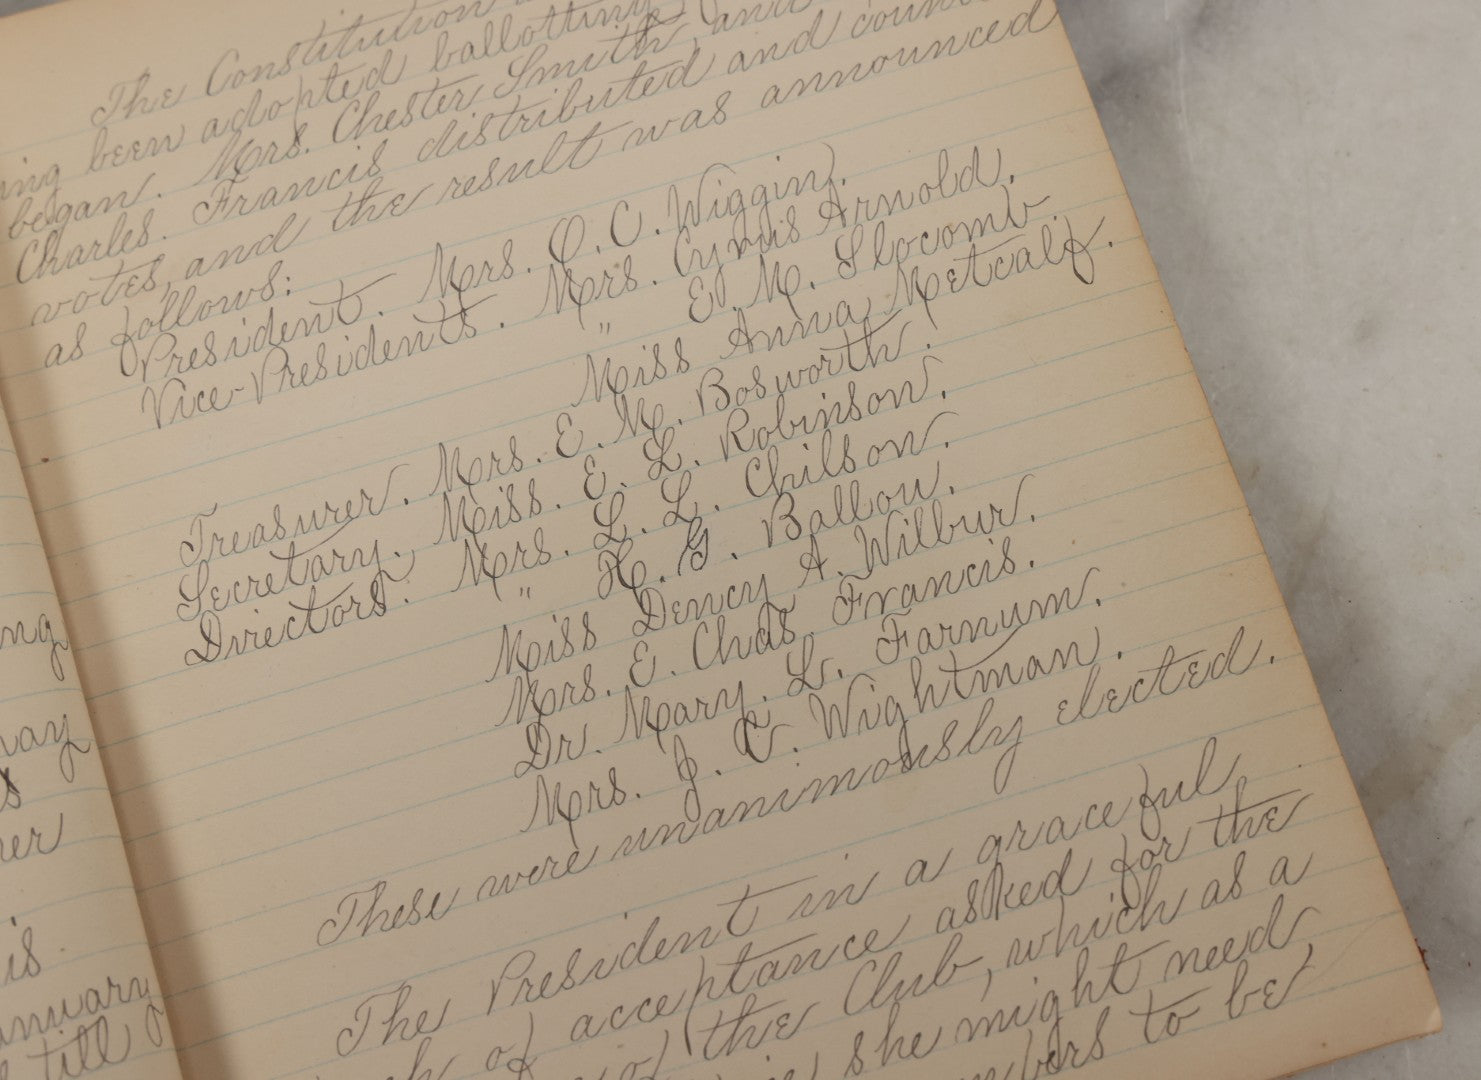 ng
ay
s
er
is.
anuary
till
The Constitution
ing been adopted ballotting
began. Mrs. Chester Smith, and
Charles. Francis distributed and coun
votes, and the result was announced
as follows:
President. Mrs. O. C. Wiggin.
Vice-Presidents. Mrs. Cyrus Arnold.
" E. M. Slocomb.
Miss Anna Metcalf.
Treasurer. Mrs. E. M. Bosworth.
Secretary. Miss. E. L. Robinson.
Directors. Mrs. L. L. Chilson.
" H. G. Ballou.
Miss Dency A. Wilbur.
Mrs. E. Chas Francis.
Dr. Mary. L. Farnum.
Mrs. J. C. Wightman.
These were unanimously elected.
The President in a graceful
of acceptance asked for the
of the Club, which as a
she might need,
mbers to be